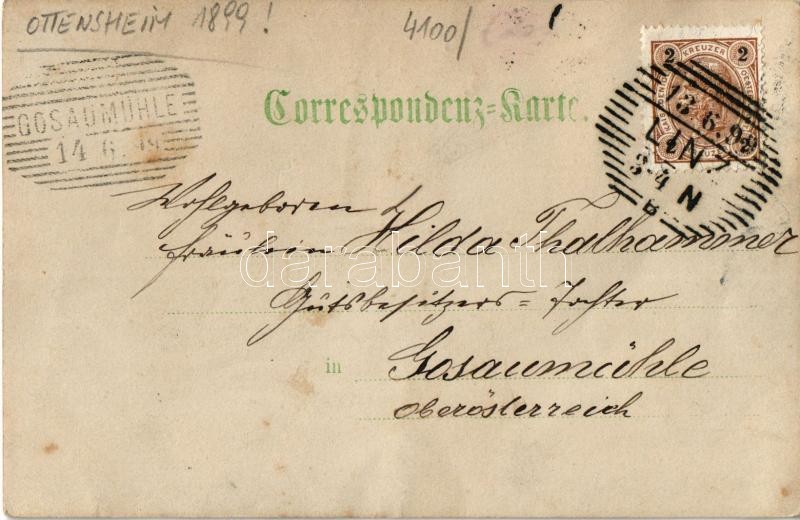 OTTENSHEIM 1899!
4100/
GOSAUMÜHLE
14 6. 99
Correspondenz=Karte.
2 KREUZER 2
13.6.99
LINZ
3-4 N
Wohlgeboren
Fräulein Hilda Thalhammer
Gutsbesitzers=Tochter
in Gosaumühle
Oberösterreich
darabanth